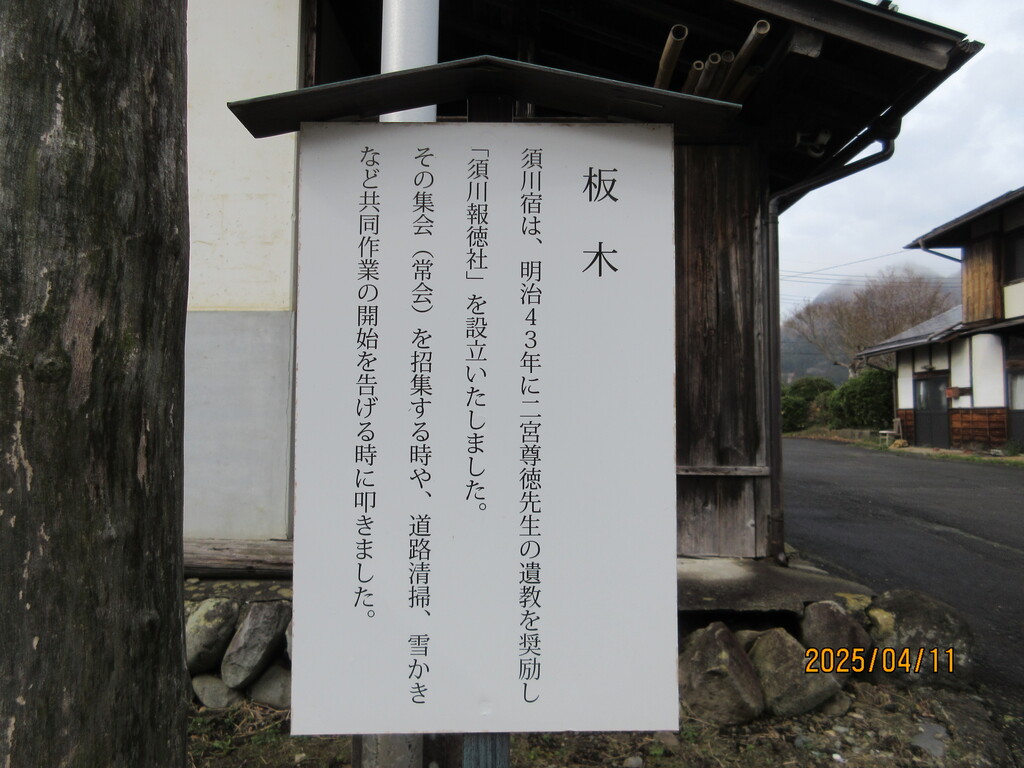 板木
須川宿は、明治43年に二宮尊徳先生の遺教を奨励し
「須川報徳社」を設立いたしました。
その集会（常会）を招集する時や、道路清掃、雪かき
など共同作業の開始を告げる時に叩きました。
2025/04/11